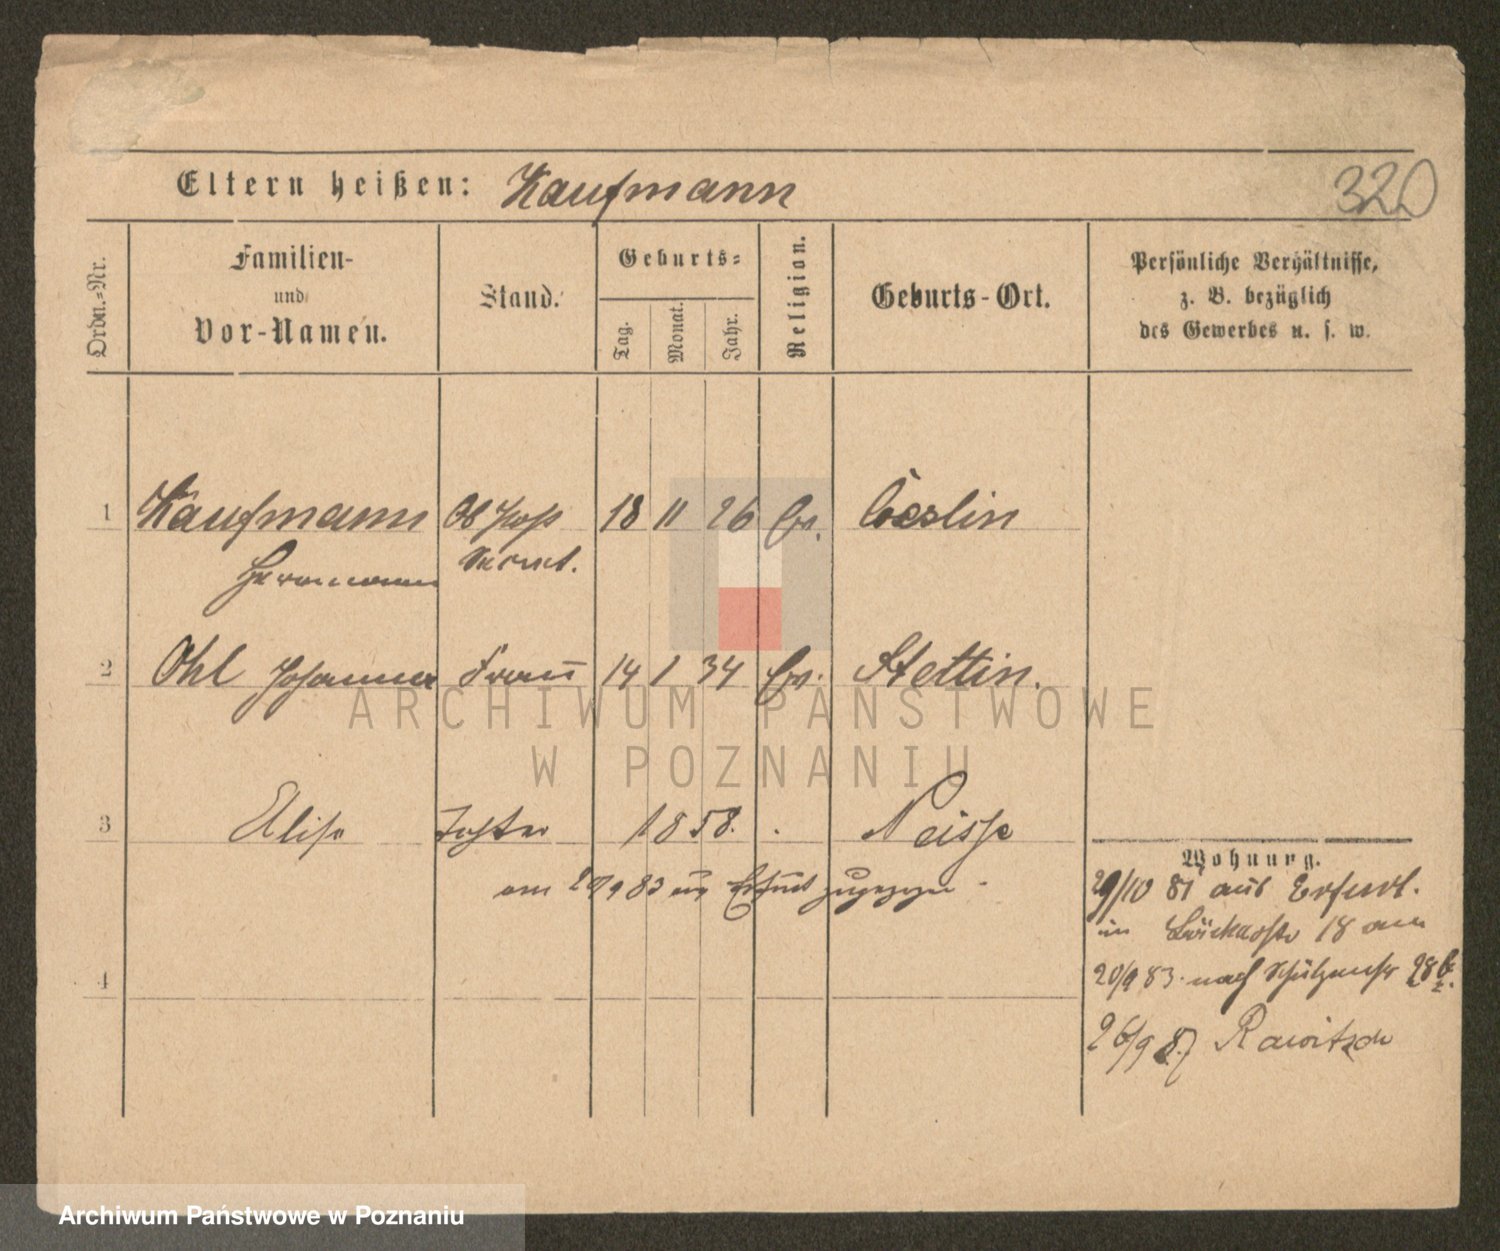 Eltern heißen: Kaufmann
320
Ordn.=Nr.
Familien-
und
Vor-Namen.
Stand.
Geburts=
Tag.
Monat.
Jahr.
Religion.
Geburts-Ort.
Persönliche Verhältnisse,
z. B. bezüglich
des Gewerbes u. s. w.
1 Kaufmann Ob Post 18 11 26 Ev. Cöslin
Herrmann Secret.
2 Ohl Johanna Frau 14 1 34 Ev. Stettin.
ARCHIWUM PAŃSTWOWE
W POZNANIU
3 Elise Tochter 1858. Neisse
am 20/9 83 aus Erfurt zugezogen
Wohnung.
29/10 81 aus Erfurt.
in 18 am
20/9 83. nach Schützenstr 28b.
26/9 87 Rawitsch
4
Archiwum Państwowe w Poznaniu